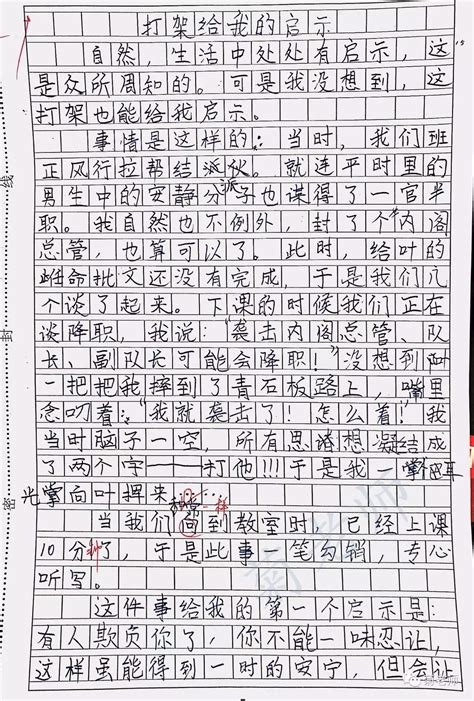 打架给我的启示
自然，生活中处处有启示，这
是众所周知的。可是我没想到，这
打架也能给我启示。
事情是这样的：当时，我们班
正风行拉帮结派伙。就连平时里的
男生中的安静分子也谋得了一官半
派
职。我自然也不例外，封了个"内阁
总管，也算可以了。此时，给叶的
任命批文还没有完成，于是我们几
个谈了起来。下课的时候我们正在
谈降职，我说："袭击内阁总管、队
长、副队长可能会降职！"没想到叶
一把把我摔到了青石板路上，嘴里
念叨着："我就袭击了！怎么着！我
当时脑子一空，所有思想凝结成
了两个字——打他!!!于是我一掌
光掌向叶挥来……
一样
当我们回到教室时，已经上课
10分钟了，于是此事一笔勾销，专心
听写。
这件事给我的第一个启示是：
有人欺负你了，你不能一味忍让，
这样虽能得到一时的安宁，但会让
线
封
密